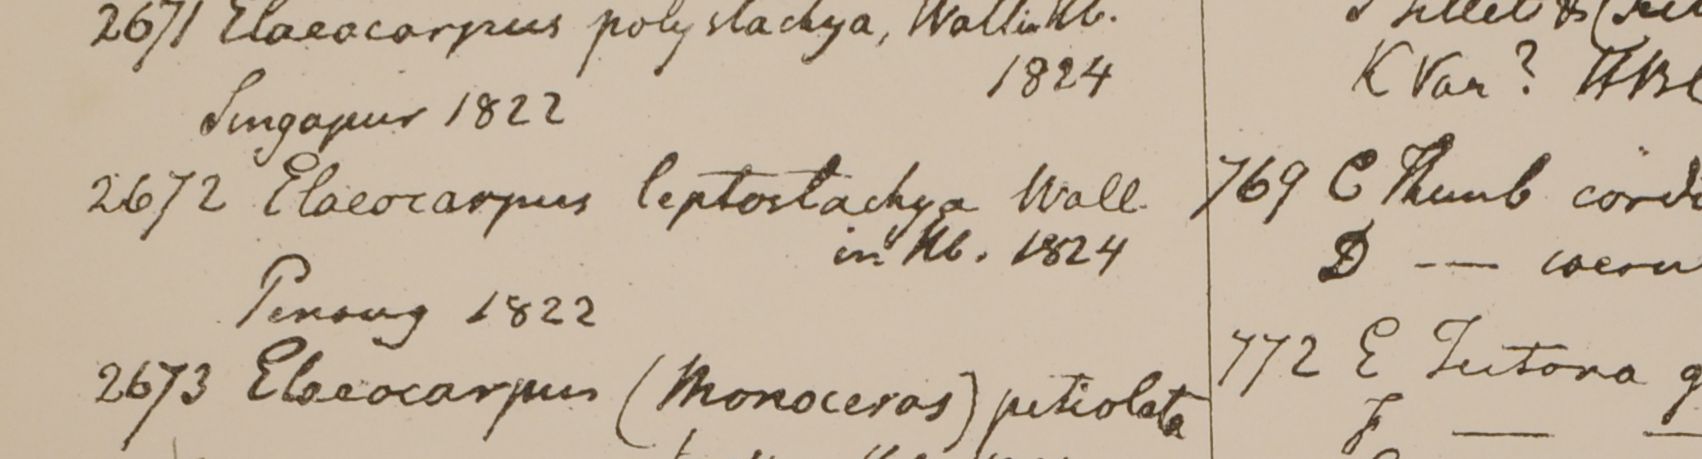 2671 Elaeocarpus polystachya, Wall in Hb.
1824
Singapur 1822
2672 Elaeocarpus leptostachya Wall.
in Hb. 1824
Penang 1822
2673 Elaeocarpus (Monoceras) petiolata
K Var?
769 C Thunb
D —
772 E Teetona
F — —